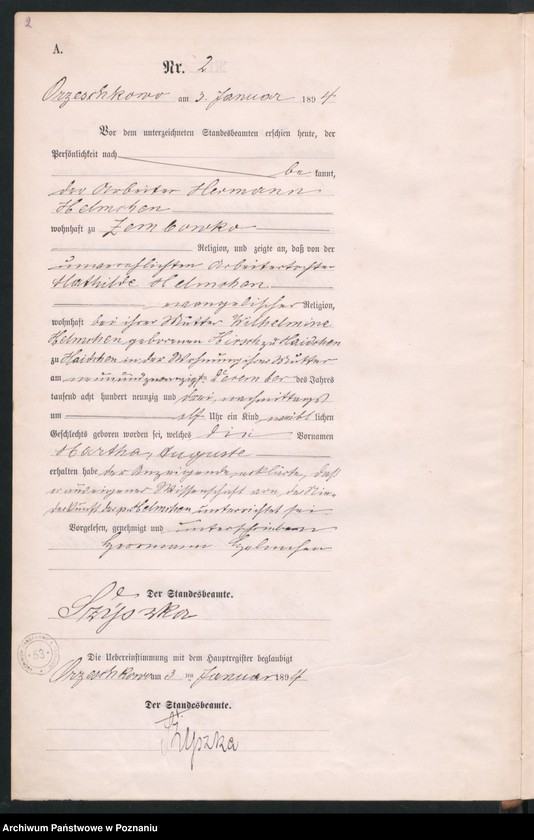 2
A.
Nr. 2
Orzeschkowo am 3. Januar 1894
Vor dem unterzeichneten Standesbeamten erschien heute, der
Persönlichkeit nach
be kannt,
der Arbeiter Hermann
Helmchen
wohnhaft zu Zembowko
Religion, und zeigte an, daß von der
unverehlichten Arbeitertochter
Mathilde Helmchen
evangelischer Religion,
wohnhaft bei ihrer Mutter Wilhelmine
Helmchen geborenen Hirsch zu Haidchen
zu Haidchen in der Wohnung ihrer Mutter
am neunundzwanzigsten Dezember des Jahres
tausend acht hundert neunzig und drei, nachmittags
um elf Uhr ein Kind weiblichen
Geschlechts geboren worden sei, welches die Vornamen
Martha, Auguste
erhalten habe, der Anzeigende erklärte, daß
er aus eigener Wissenschaft von der Nie-
derkunft der p. Helmchen unterrichtet sei
Vorgelesen, genehmigt und unterschrieben
Herrmann Helmchen
Der Standesbeamte.
Szyszka
Die Uebereinstimmung mit dem Hauptregister beglaubigt
Orzeschkowo am 3 ten Januar 1894
Der Standesbeamte.
Szyszka
53
Archiwum Państwowe w Poznaniu